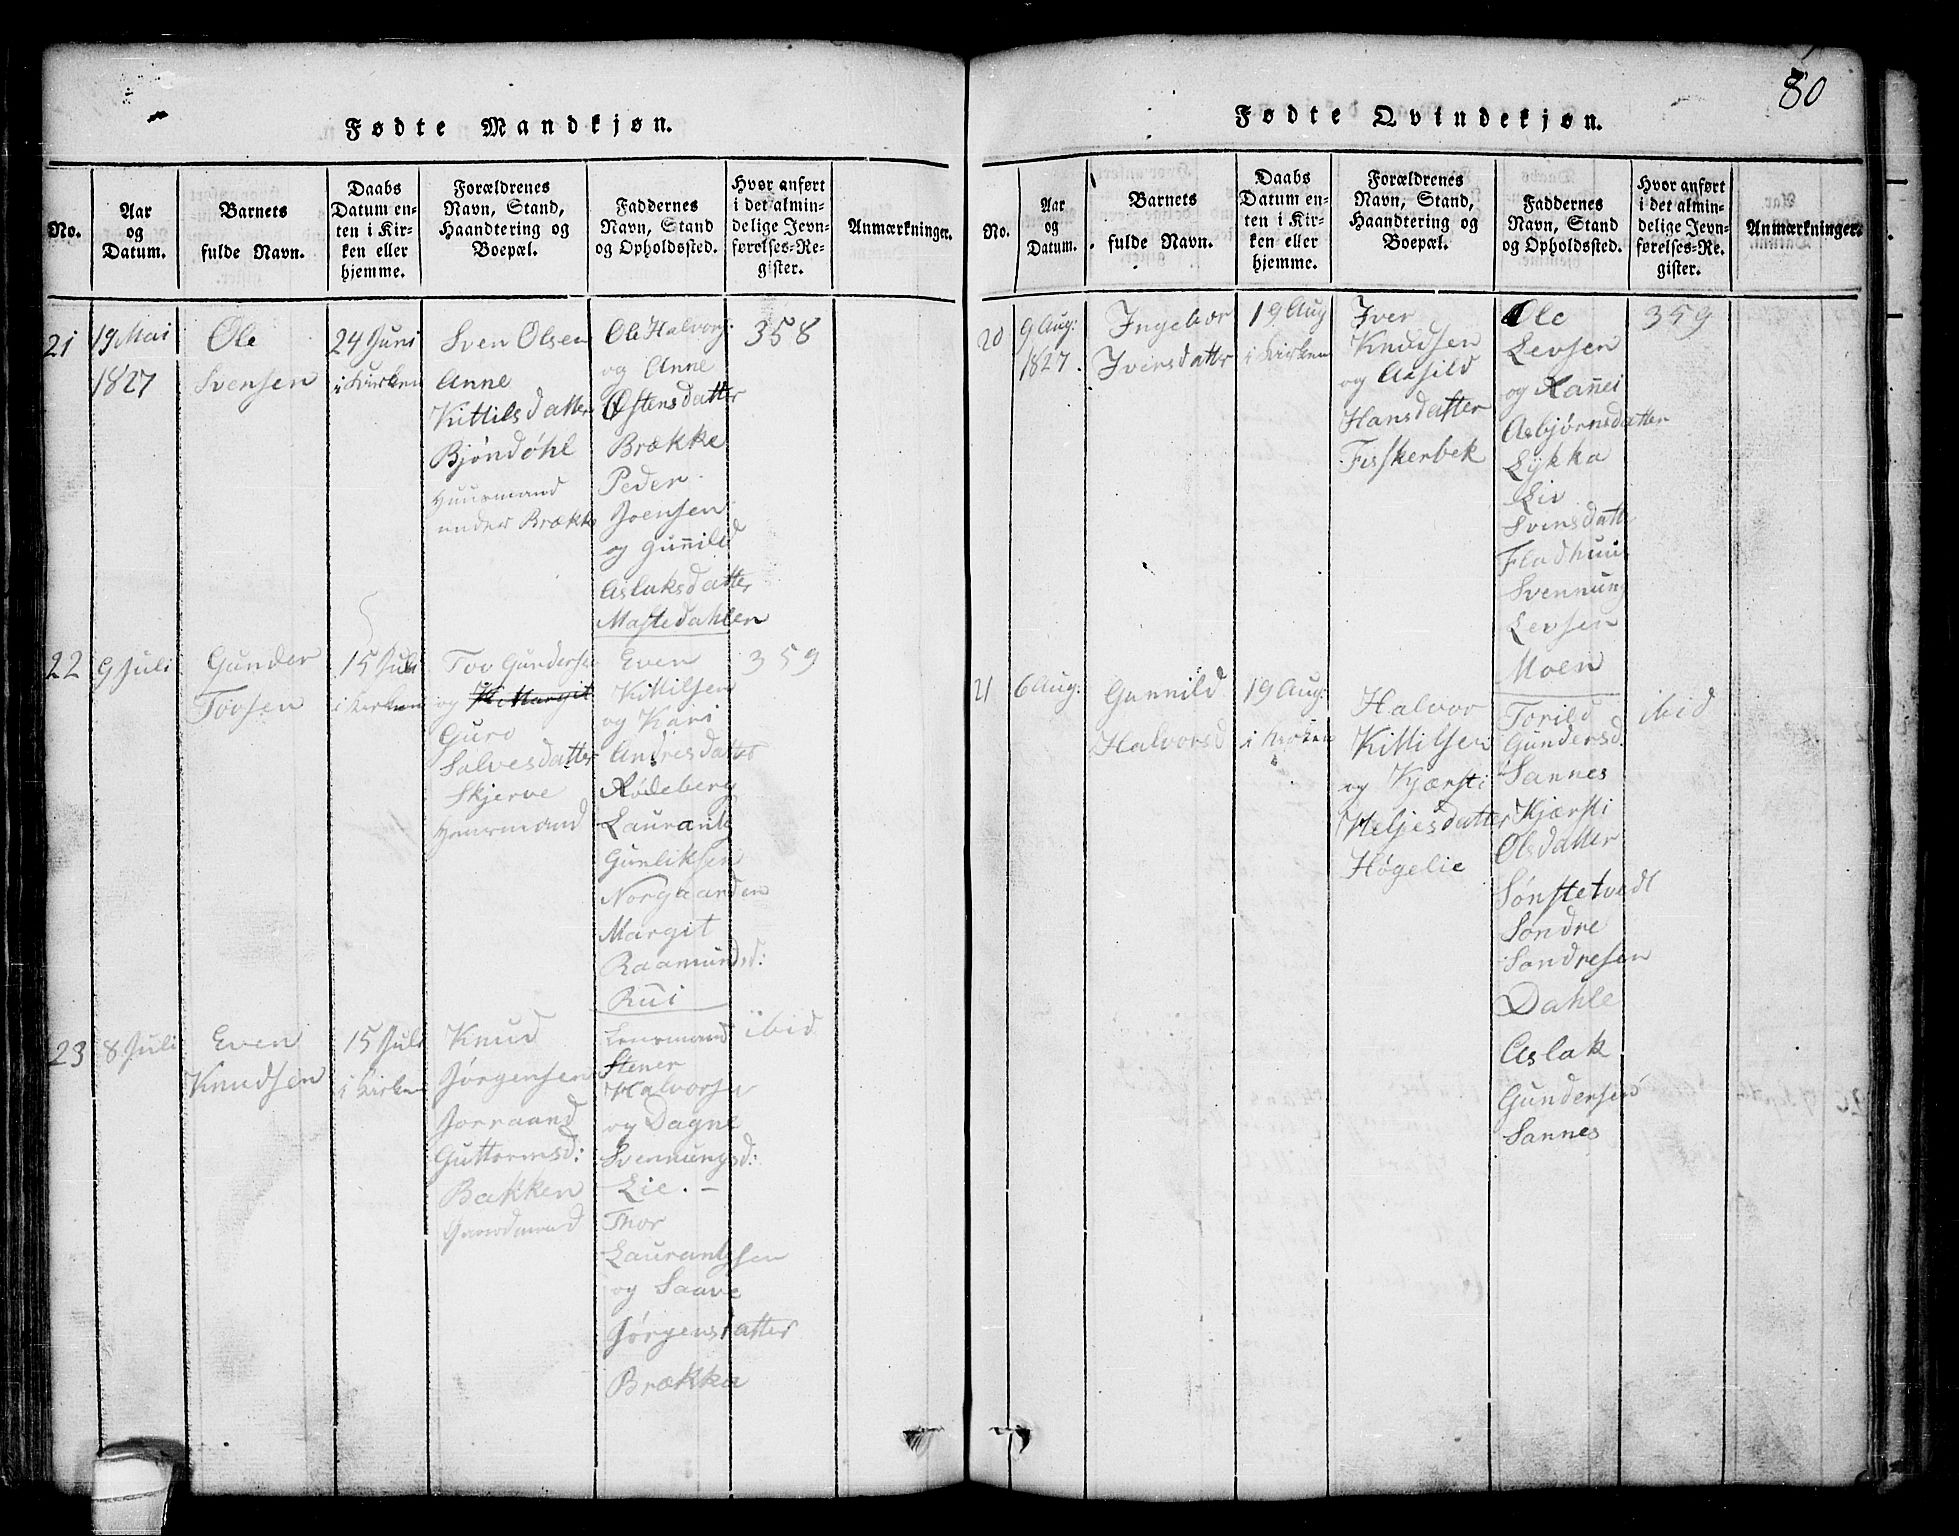 80
Fødte Mandkjøn.
No.
Aar
og
Datum.
Barnets
fulde Navn.
Daabs
Datum en-
ten i Kir-
ken eller
hjemme.
Forældrenes
Navn, Stand,
Haandtering og
Boepæl.
Faddernes
Navn, Stand
og Opholdssted.
Hvor anført
i det almin-
delige Jevn-
førelses-Re-
gister.
Anmærkninger.
21
19 Mai
1827
Ole
Svensen
24 Juni
i Kirken
Sven Olsen
Anne
Kittilsdatter
Bjöndöhl
Huusmand
under Brække
Ole Halvors.
og Anne
Østensdatter
Brække
Peder
Joensen
og Gunnild
Aslaksdatter
Mastedahlen
358
22
9 Juli
Gunder
Tovsen
15 Juli
i Kirken
Tov Gundersen
og K Margit
Guro
Salvesdatter
Skjerve
Huusmand
Even
Kittilsen
og Kari
Andresdatter
Rödeberg
Laurants
Gunliksen
Norgaarden
Margit
Raamundsd:
Rui
359
23
8 Juli
Even
Knudsen
15 Juli
i Kirken
Knud
Jörgensen
Jorraand
Guttormsd:
Bakken
Gaardmand
Lensmand
Stener
Halvorsen
og Dagne
Svennungsd:
Lie. –
Thor
Laurantsen
og Saave
Jörgensdatter
Brækka
ibid
Fødte Qvindekjøn.
No.
Aar
og
Datum.
Barnets
fulde Navn.
Daabs
Datum en-
ten i Kir-
ken eller
hjemme.
Forældrenes
Navn, Stand,
Haandtering og
Boepæl.
Faddernes
Navn, Stand
og Opholdssted.
Hvor anført
i det almin-
delige Jevn-
førelses-Re-
gister.
Anmærkninger.
20
9 Aug:
1827.
Ingebor
Iversdatter
19 Aug
i Kirken
Iver
Knudsen
og Aasild
Hansdatter
Fisskerbek
Ole
Levsen
og Rannei
Asbjörnsdatter
Lykka
Liv
Svensdatt
Fladhuus
Svennung
Levsen
Moen
359
21
6 Aug:
Gunnild
Halvorsd
19 Aug:
i Kirken
Halvor
Kittilsen
og Kjærsti
Heljesdatter
Høgelie
Torild
Gundersd.
Sannes
Kjærsti
Olsdatter
Sönstetvedt
Söndre
Sondresen
Dahle
Aslak
Gundersen
Sannes
ibid